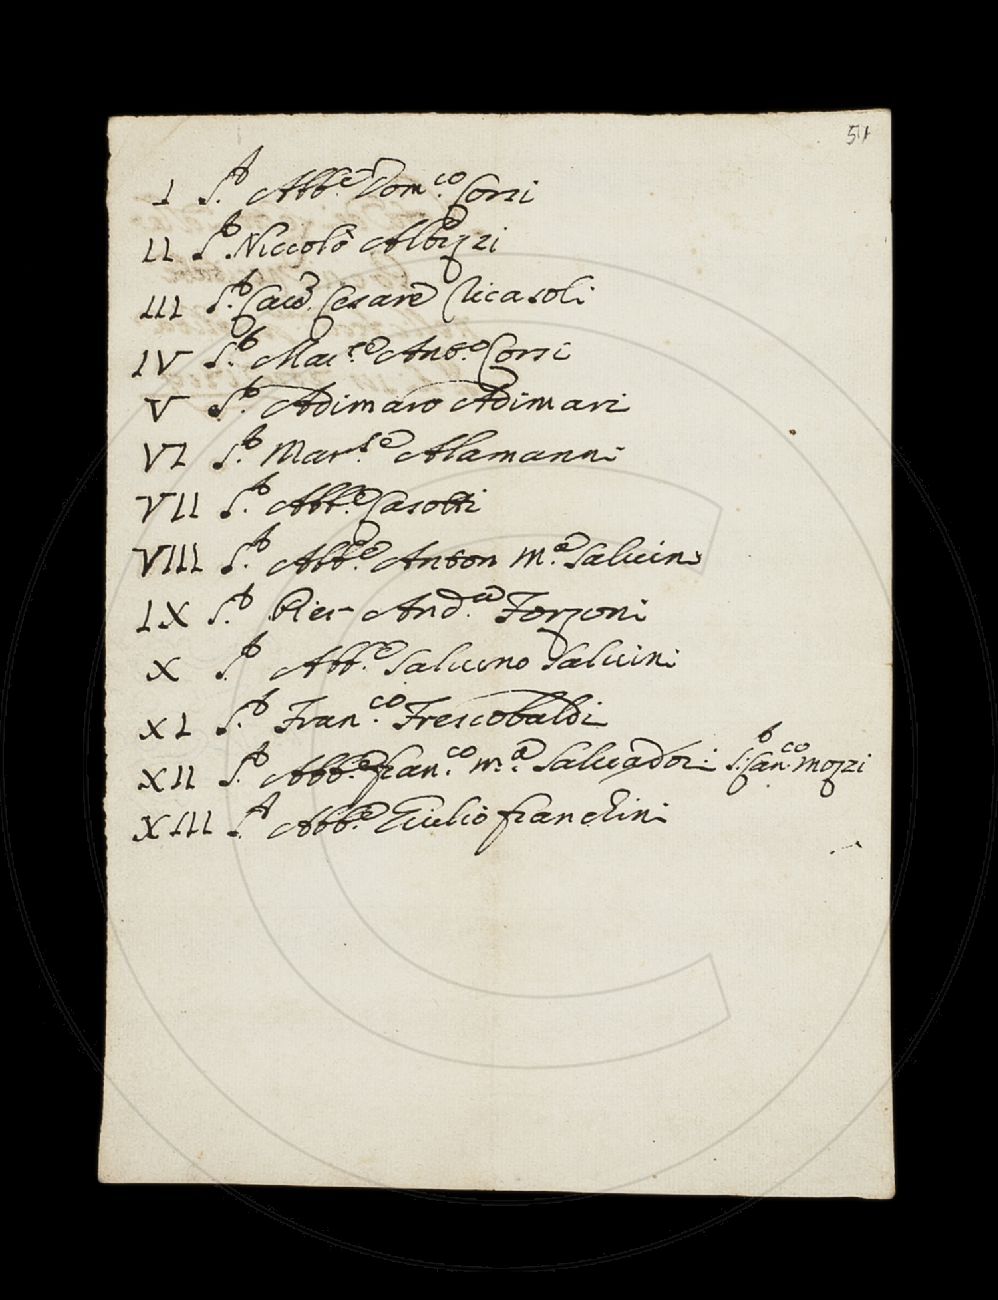 51
I S.r Abb.e Dom.co Corsi
II S.r Niccolò Albizzi
III S.r Cav.e Cesare Ricasoli
IV S.r Mar.se Ant.o Corsi
V S.r Adimaro Adimari
VI S.r Mar.se Alamanni
VII S.r Abb.e Casotti
VIII S.r Abb.e Anton M.a Salvini
IX S.r Pier And.a Forzoni
X S.r Abb.e Salvino Salvini
XI S.r Fran.co Frescobaldi
XII S.r Abb.e Fran.co M.a Salvadori S.r Fran.co Mozzi
XIII S.r Abb.e Giulio Franchini